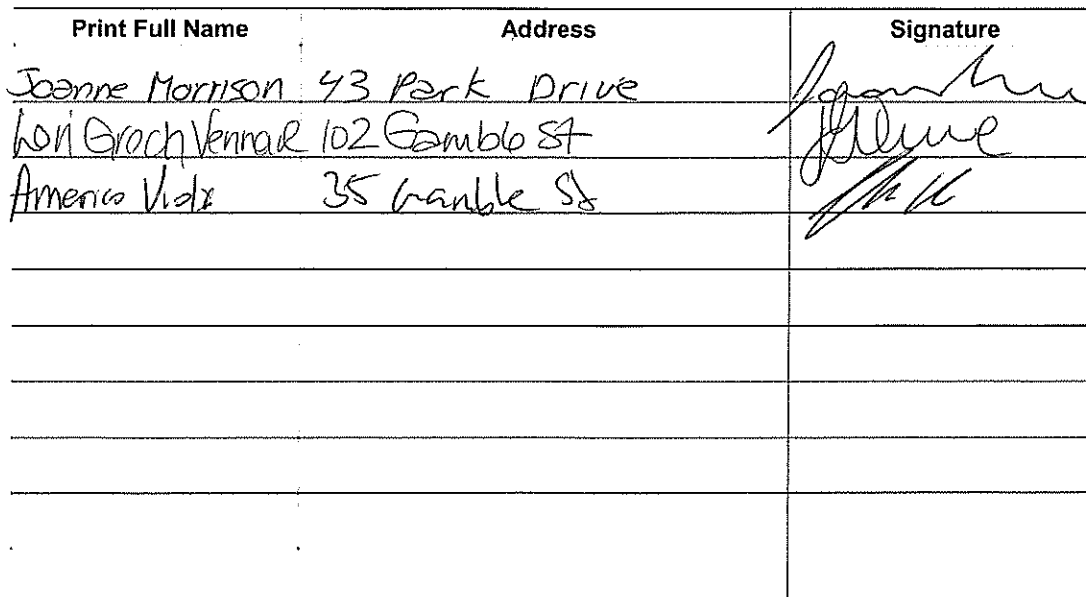 Print Full Name Address Signature
Joanne Morrison 43 Park Drive
Lori Groch Vennar 102 Gamble St
Americo Viola 35 Gamble St